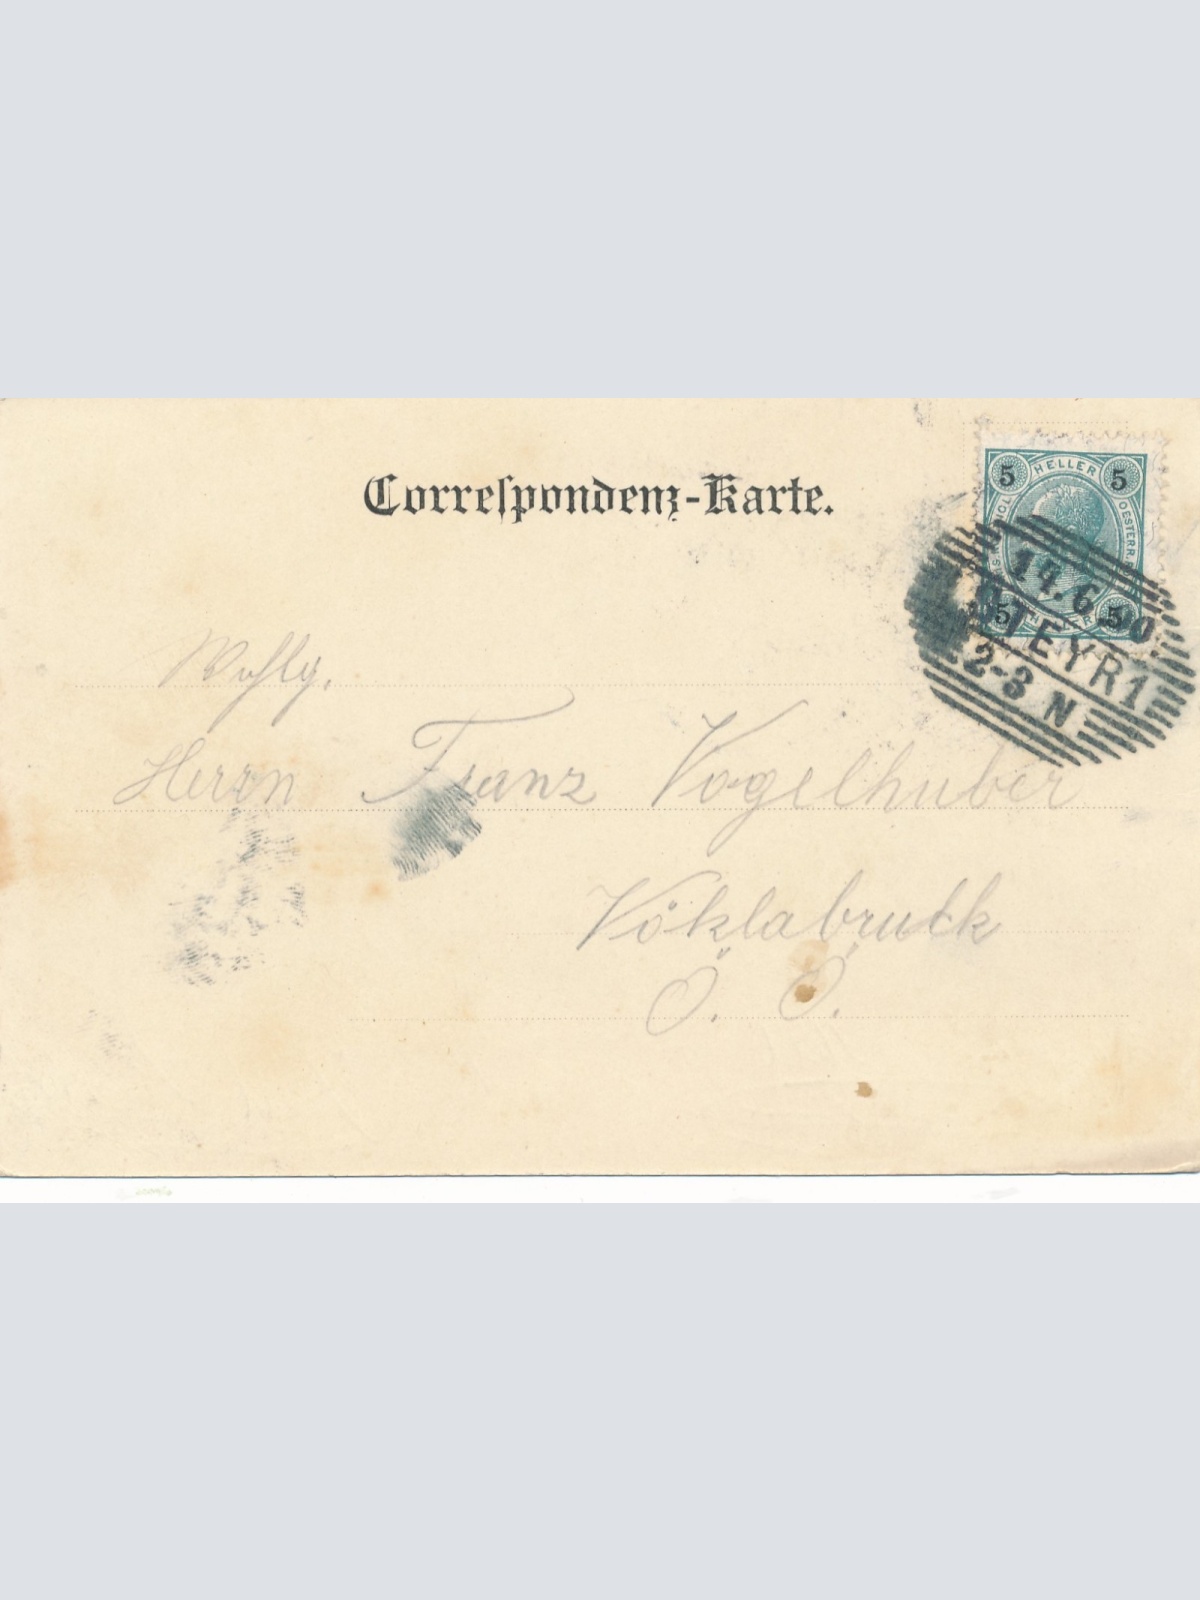 Correspondenz-Karte.
5 HELLER 5
OESTERR.
14.6.00
STEYR 1
2-3 N
5 5
Wohlg.
Herrn Franz Vogelhuber
Vöklabruck
Ö. Ö.